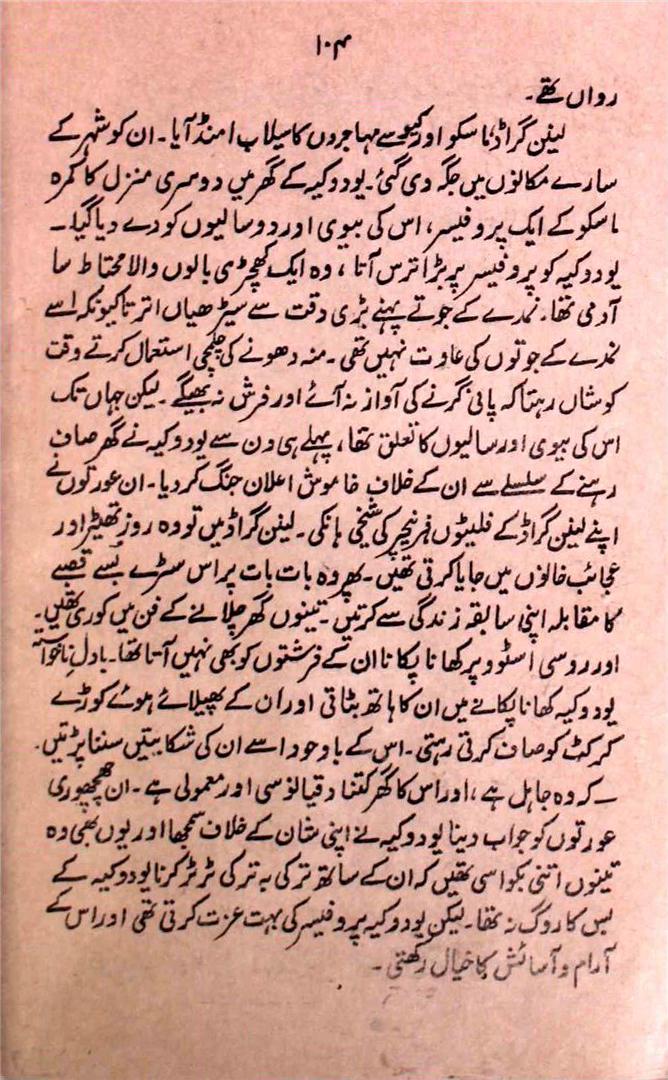 ۱۰۴
رواں تھے۔
لینن گراڈ، ماسکو اور کیو سے مہاجروں کا سیلاب امنڈ آیا۔ ان کو شہر کے
سارے مکانوں میں جگہ دی گئی۔ یودوکیہ کے گھر میں دوسری منزل کا کمرہ
ماسکو کے ایک پروفیسر، اس کی بیوی اور دو سالیوں کو دے دیا گیا۔
یودوکیہ کو پروفیسر پر بڑا ترس آتا، وہ ایک کھچڑی بالوں والا محتاط سا
آدمی تھا۔ نمدے کے جوتے پہنے بڑی دقت سے سیڑھیاں اترتا کیونکہ اسے
نمدے کے جوتوں کی عادت نہیں تھی۔ منہ دھونے کی چلمچی استعمال کرتے وقت
کوشاں رہتا کہ پانی گرنے کی آواز نہ آئے اور فرش نہ بھیگے۔ لیکن جہاں تک
اس کی بیوی اور سالیوں کا تعلق تھا، پہلے ہی دن سے یودوکیہ نے گھر صاف
رہنے کے سلسلے سے ان کے خلاف خاموش اعلان جنگ کر دیا۔ ان عورتوں نے
اپنے لینن گراڈ کے فلیٹوں فرنیچر کی شیخی ہانکی۔ لینن گراڈ میں تو وہ روز تھیٹر اور
عجائب خانوں میں جایا کرتی تھیں۔ پھر وہ بات بات پر اس سڑے بسے قصبے
کا مقابلہ اپنی سابقہ زندگی سے کرتیں۔ تینوں گھر چلانے کے فن میں کوری تھیں۔
اور روسی اسٹوو پر کھانا پکانا ان کے فرشتوں کو بھی نہیں آتا تھا۔ بادل ناخواستہ
یودوکیہ کھانا پکانے میں ان کا ہاتھ بٹاتی اور ان کے پھیلائے ہوئے کوڑے
کرکٹ کو صاف کرتی رہتی۔ اس کے باوجود اسے ان کی شکایتیں سننا پڑتیں۔
کہ وہ جاہل ہے، اور اس کا گھر کتنا دقیانوسی اور معمولی ہے۔ ان چھچھوری
عورتوں کو جواب دینا یودوکیہ نے اپنی شان کے خلاف سمجھا اور یوں بھی وہ
تینوں اتنی بکواسی تھیں کہ ان کے ساتھ ترکی بہ ترکی ٹر ٹر کرنا یودوکیہ کے
بس کا روگ نہ تھا۔ لیکن یودوکیہ پروفیسر کی بہت عزت کرتی تھی اور اس کے
آرام و آسائش کا خیال رکھتی۔